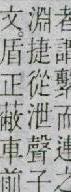 者謂繫而連之
淵捷從泄聲子
文。盾正蔽車前